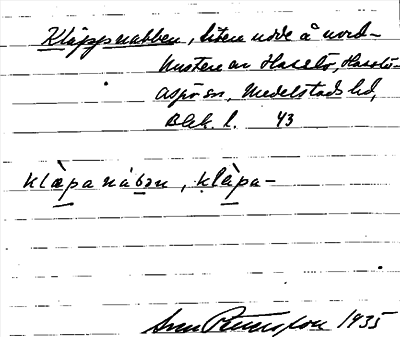 Kläppsnabben, liten udde å nord-
kusten av Hasslö, Hasslö-
aspö sn, Medelstads hd,
Blek. l. 43
klæ̀panábən, klæ̀pa-
Sven Benson 1935